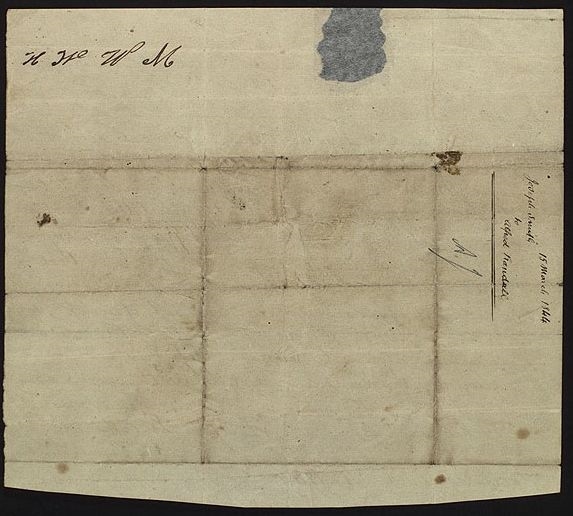 H He W M
Joseph Smith 15 March 1844
to
Alfred Randall
A. J.